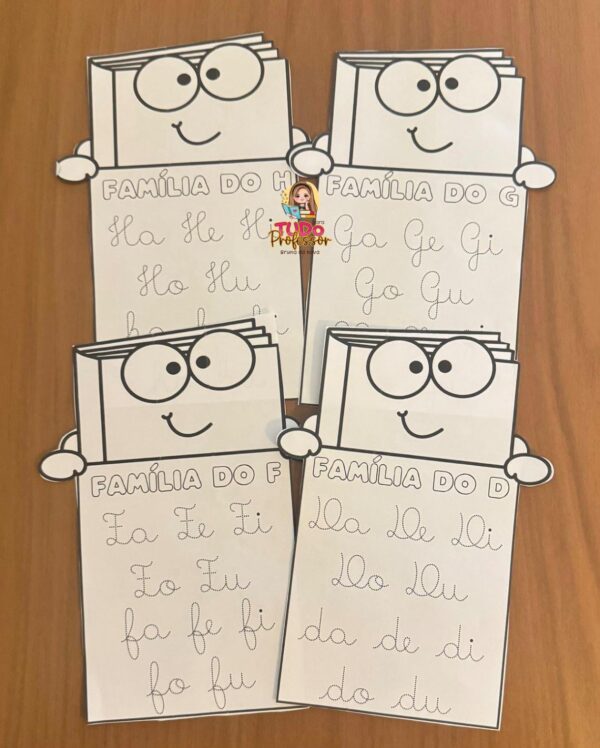 FAMÍLIA DO H
Ha He Hi
Ho Hu
FAMÍLIA DO G
Ga Ge Gi
Go Gu
TUDO
Professor
FAMÍLIA DO F
Fa Fe Fi
Fo Fu
fa fe fi
fo fu
FAMÍLIA DO D
Da De Di
Do Du
da de di
do du